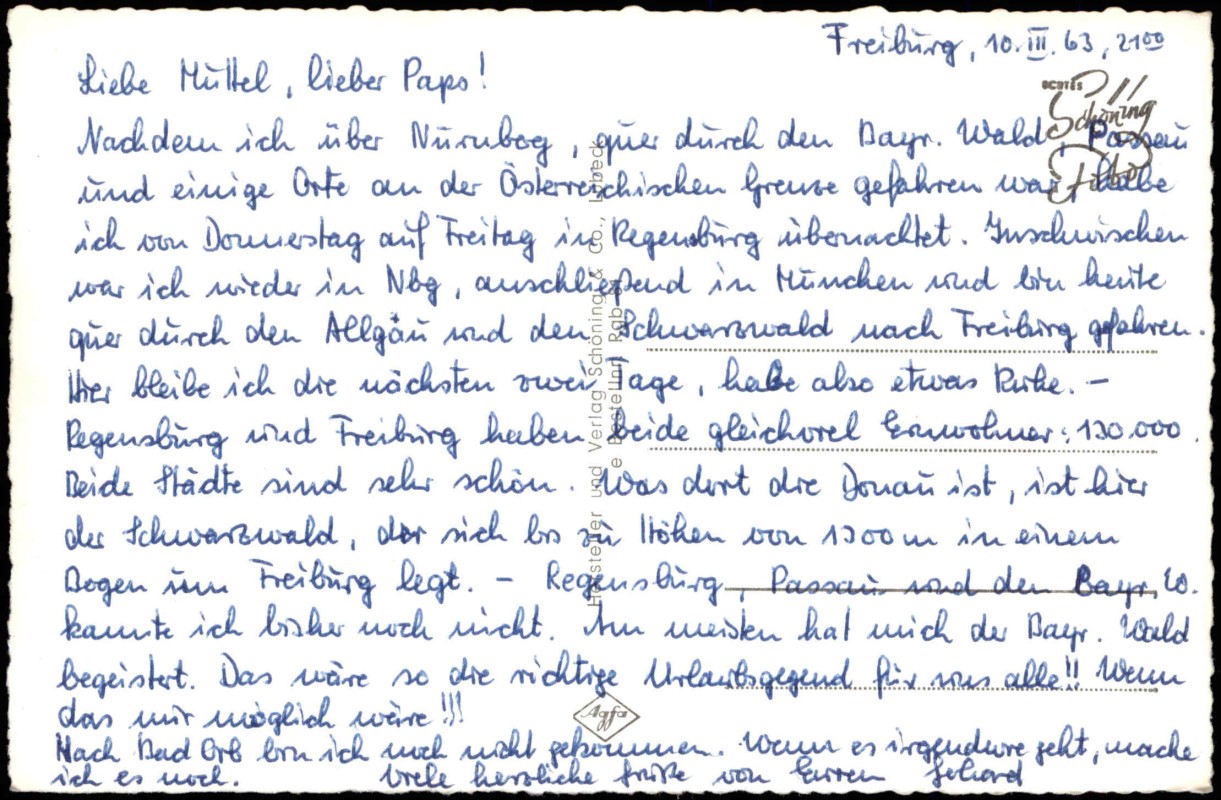 Freiburg, 10. III. 63, 21⁰⁰
Liebe Muttel, lieber Paps!
Nachdem ich über Nürnberg, quer durch den Bayr. Wald, Passau
und einige Orte an der Österreichischen Grenze gefahren war, habe
ich von Donnerstag auf Freitag in Regensburg übernachtet. Inzwischen
war ich wieder in Nbg, anschließend in München und bin heute
quer durch den Allgäu und den Schwarzwald nach Freiburg gefahren.
Hier bleibe ich die nächsten zwei Tage, habe also etwas Ruhe. –
Regensburg und Freiburg haben beide gleichviel Einwohner: 130.000.
Beide Städte sind sehr schön. Was dort die Donau ist, ist hier
der Schwarzwald, der sich bis zu Höhen von 1300 m in einem
Bogen um Freiburg legt. – Regensburg, Passau und den Bayr. W.
kannte ich bisher noch nicht. Am meisten hat mich der Bayr. Wald
begeistert. Das wäre so die richtige Urlaubsgegend für uns alle!! Wenn
das mir möglich wäre!!!
Nach Bad Orb bin ich noch nicht gekommen. Wenn es irgendwie geht, mache
ich es noch. Viele herzliche Grüße von Eurem Gehard
ECHTES
Schöning
Foto
Hersteller und Verlag Schöning & Co., Lübeck
Agfa